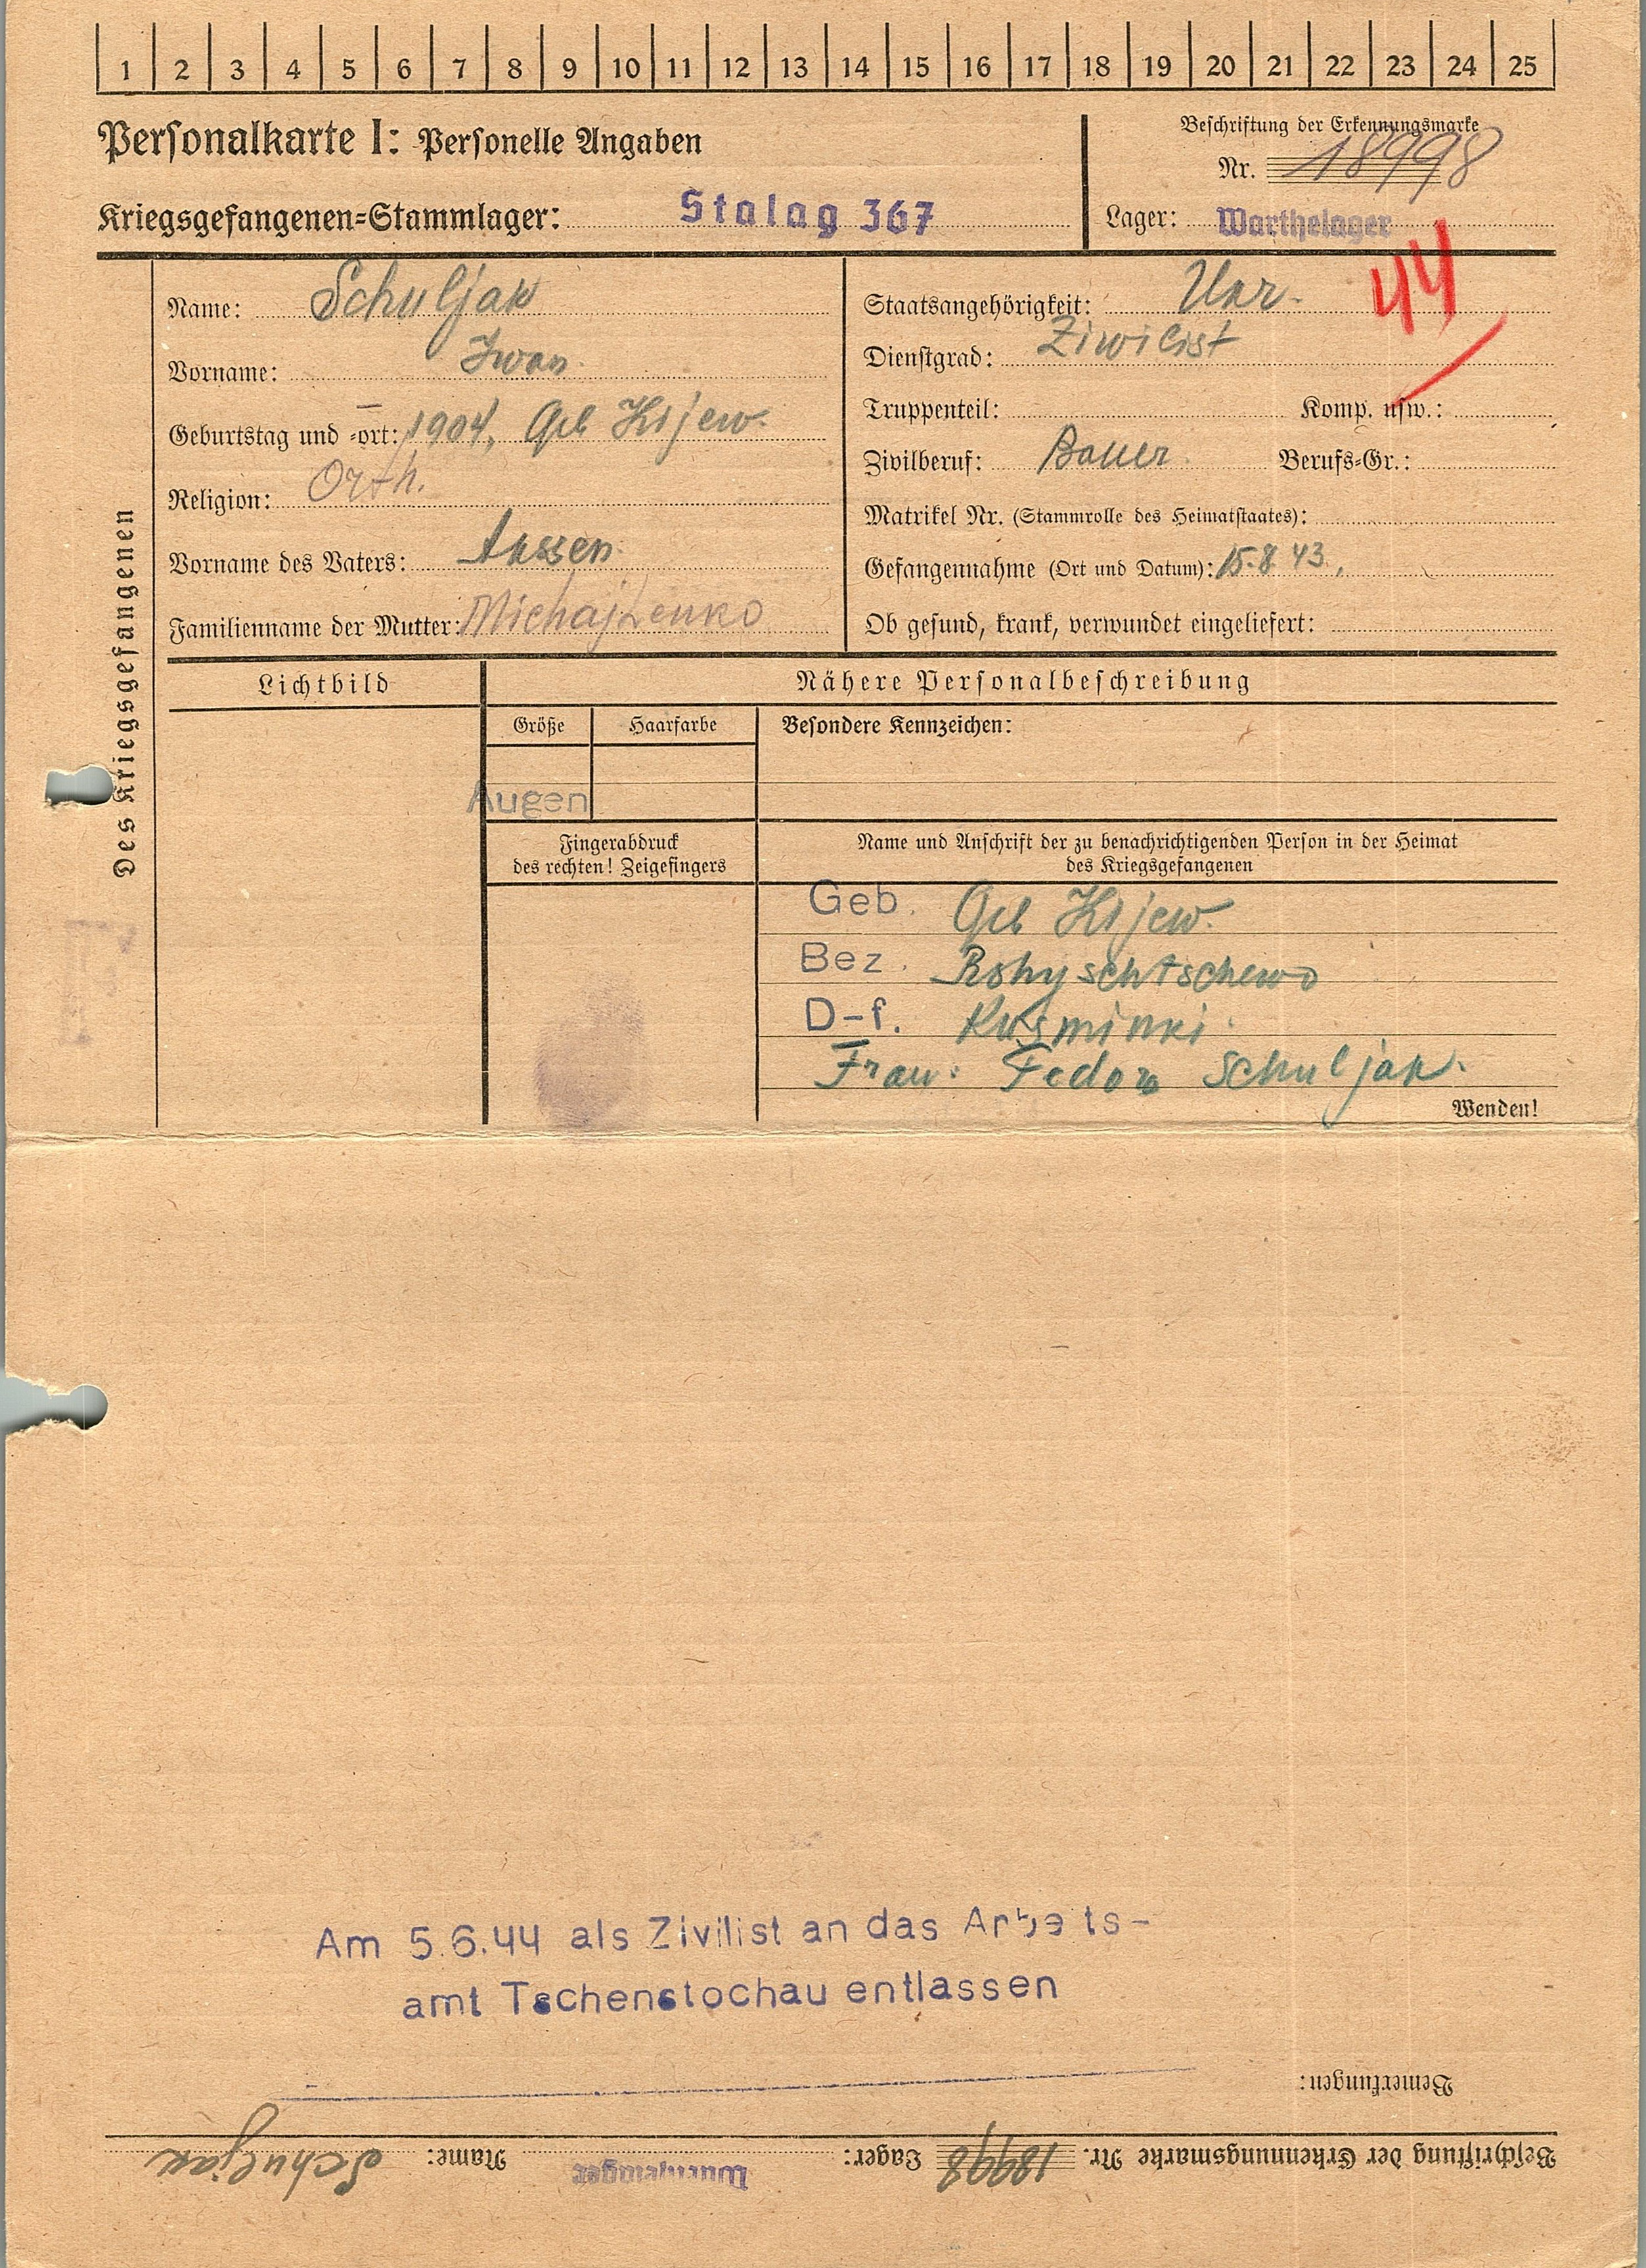 1 2 3 4 5 6 7 8 9 10 11 12 13 14 15 16 17 18 19 20 21 22 23 24 25
Personalkarte I: Personelle Angaben
Beschriftung der Erkennungsmarke
Nr. 18998
Kriegsgefangenen=Stammlager: Stalag 367
Lager: Warthelager
44
Des Kriegsgefangenen
Name: Schuljak
Vorname: Iwan
Geburtstag und =ort: 1904, Geb Kijew.
Religion: Orth.
Vorname des Vaters:
Familienname der Mutter: Michajlenko
Staatsangehörigkeit: Ukr.
Dienstgrad: Ziwilist
Truppenteil: Komp. usw.:
Zivilberuf: Bauer Berufs=Gr.:
Matrikel Nr. (Stammrolle des Heimatstaates):
Gefangennahme (Ort und Datum): 15.8.43.,
Ob gesund, krank, verwundet eingeliefert:
Lichtbild
Nähere Personalbeschreibung
Größe Haarfarbe Besondere Kennzeichen:
Augen
Fingerabdruck
des rechten! Zeigefingers
Name und Anschrift der zu benachrichtigenden Person in der Heimat
des Kriegsgefangenen
Geb. Geb Kijew.
Bez.
D-f. Kusminki.
Frau: Fedora Schuljak.
Wenden!
Am 5.6.44 als Zivilist an das Arbeits-
amt Tschenstochau entlassen
Bemerkungen:
Beschriftung der Erkennungsmarke Nr. 18998 Lager: Warthelager Name: Schuljak